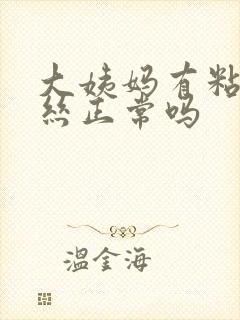 大姨妈有粘
丝正常吗
温金海